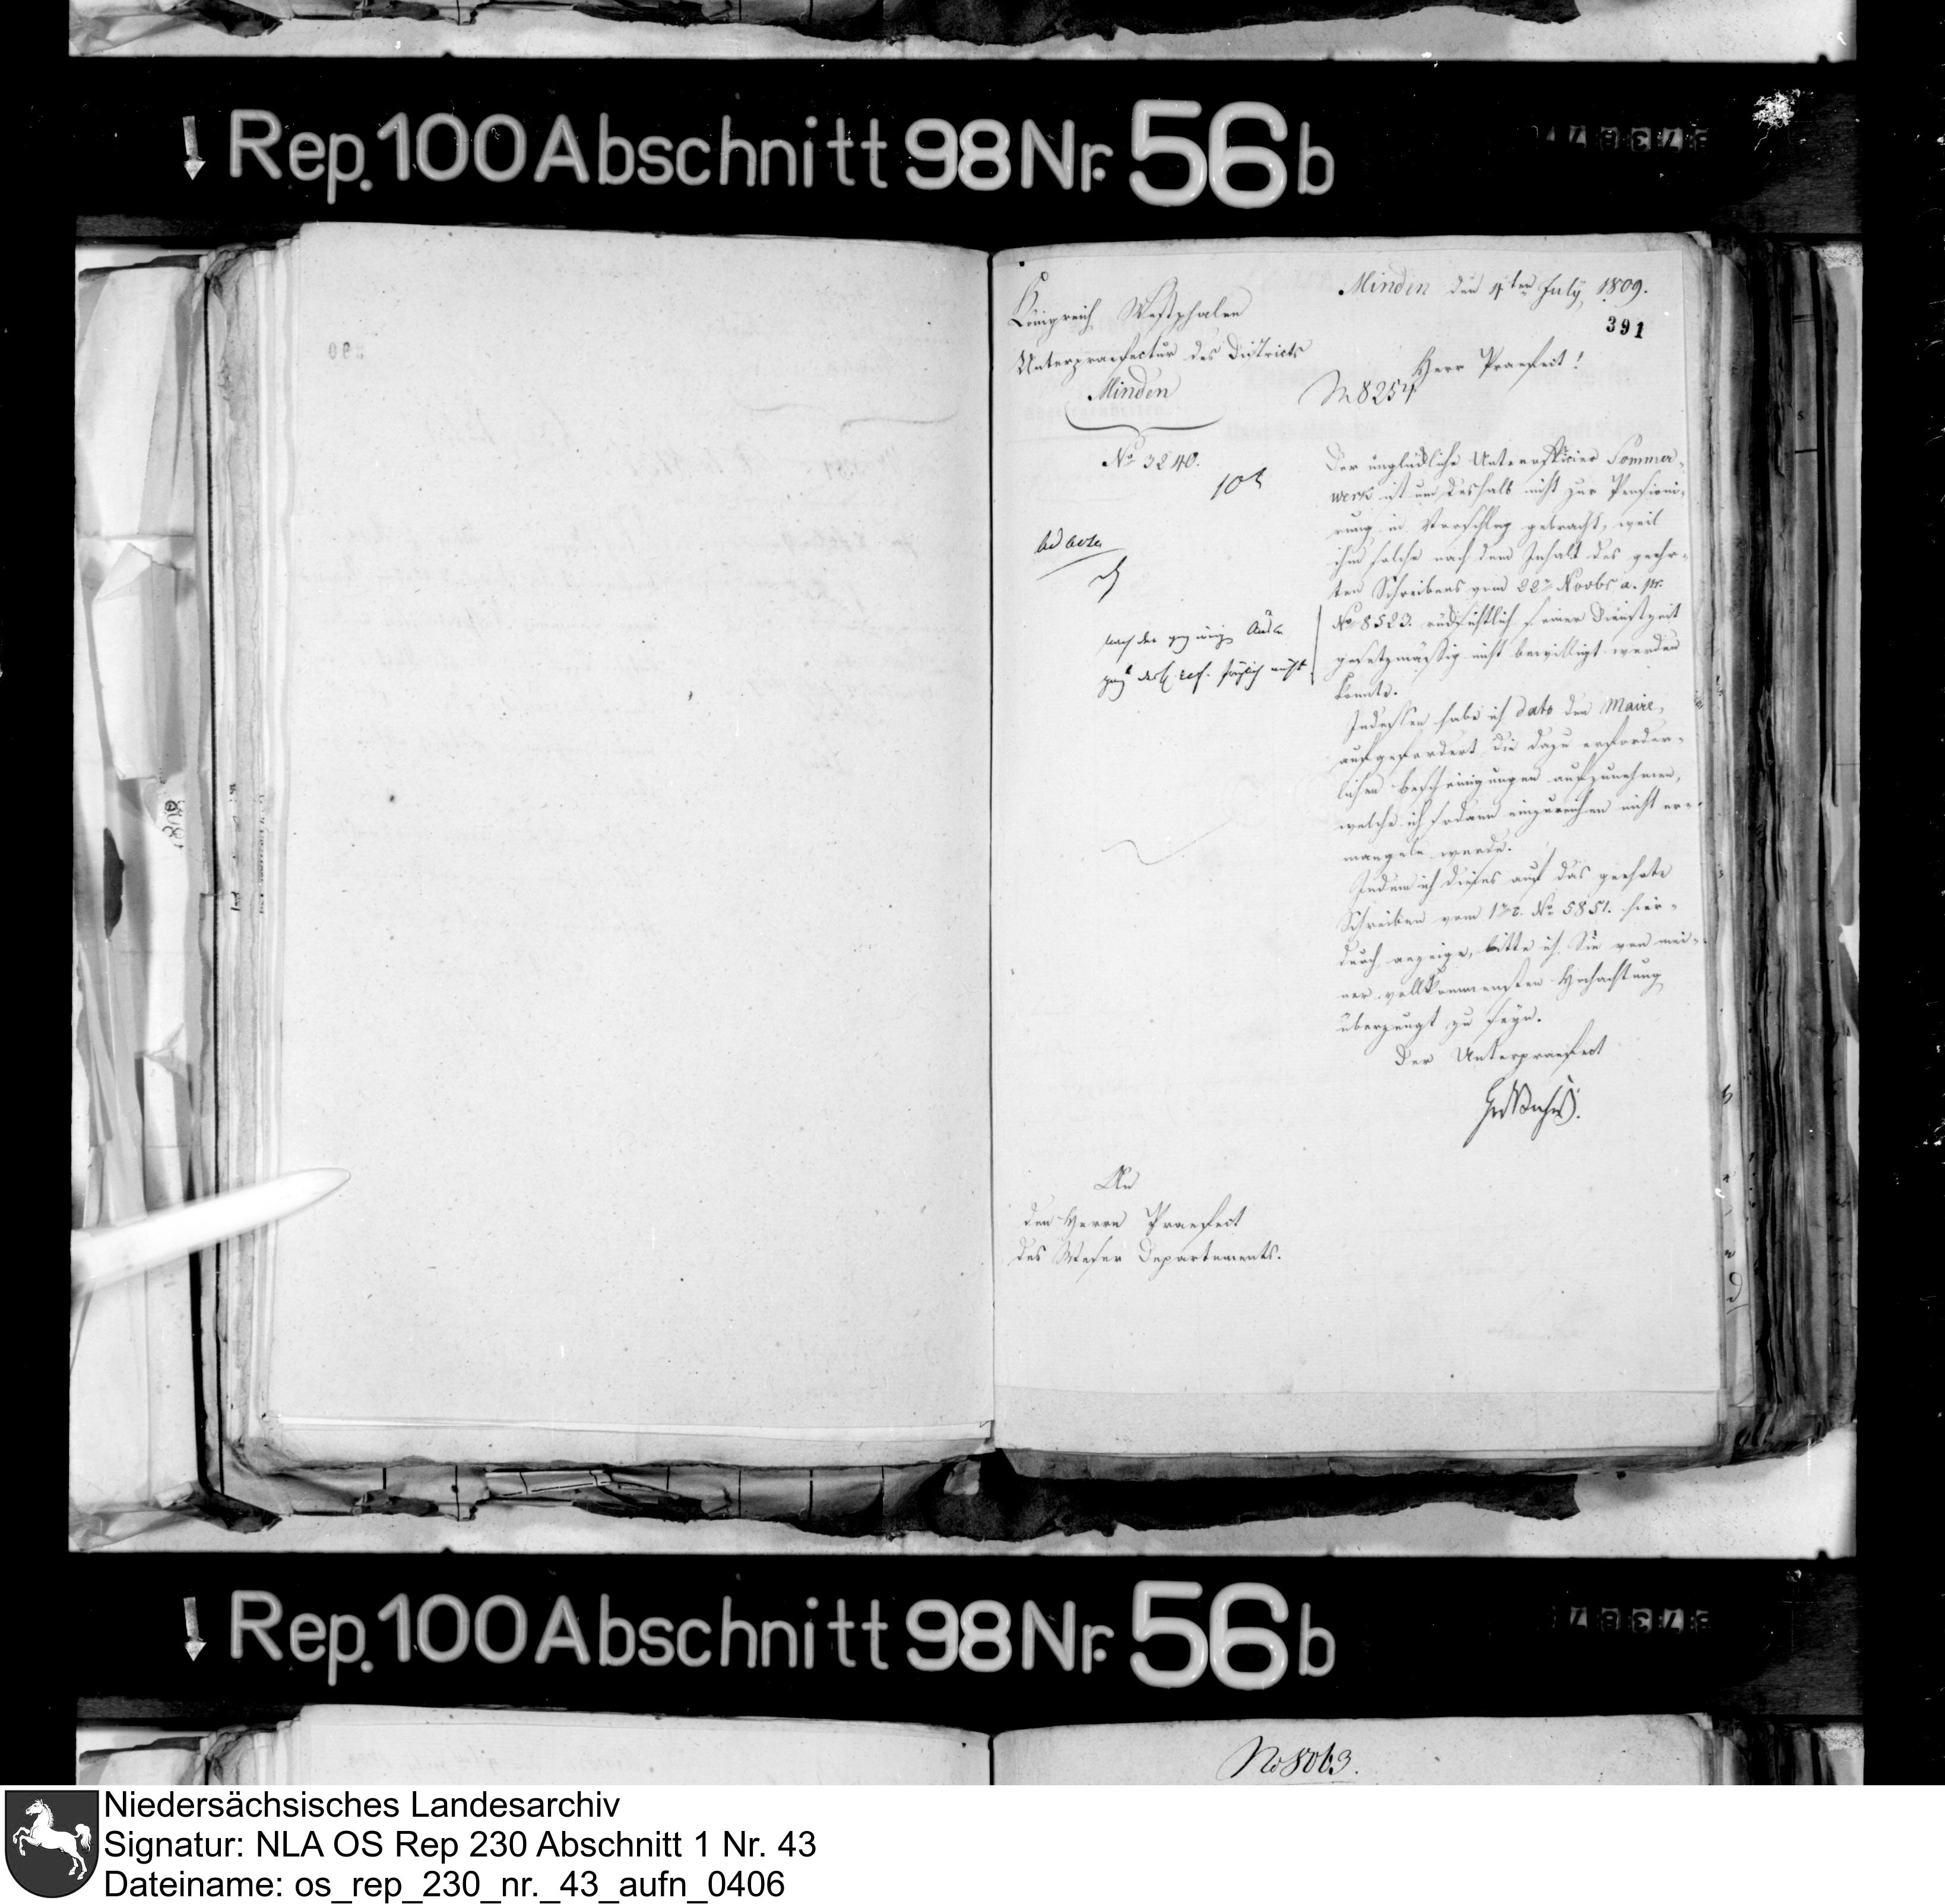 Rep. 100 Abschnitt 98 Nr. 56 b
Minden den 4ten July 1809.
391
Königreich Westphalen
Unterpraefectur des Districts
Minden
No 3240.
Herr Praefect!
No 8254
ad acta
Der unglückliche Unterofficier Sommer-
werk ist um deshalb nicht zur Pensioni-
rung in Vorschlag gebracht, weil
ihm solche nach dem Inhalt des geehr-
ten Schreibens vom 22n Novbr a. pr.
No 8523. rücksichtlich seiner Dienstzeit
gesetzmässig nicht bewilligt werden
konnte.
Indessen habe ich dato den Maire,
aufgefordert die dazu erforder-
lichen Bescheinigungen aufzunehmen,
welche ich sodann einzureichen nicht er-
mangeln werde.
Indem ich dieses auf das geehrte
Schreiben vom No 5851. hier-
durch anzeige, bitte ich Sie von mei-
ner vollkommensten Hochachtung
überzeugt zu seyn.
Der Unterpraefect
An
den Herrn Praefect
des Weser Departements.
Rep. 100 Abschnitt 98 Nr. 56 b
No 8063.
Niedersächsisches Landesarchiv
Signatur: NLA OS Rep 230 Abschnitt 1 Nr. 43
Dateiname: os_rep_230_nr._43_aufn_0406